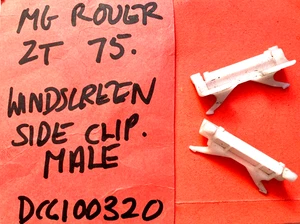 MG ROVER
ZT 75.
WINDSCREEN
SIDE CLIP.
MALE
DCC100320